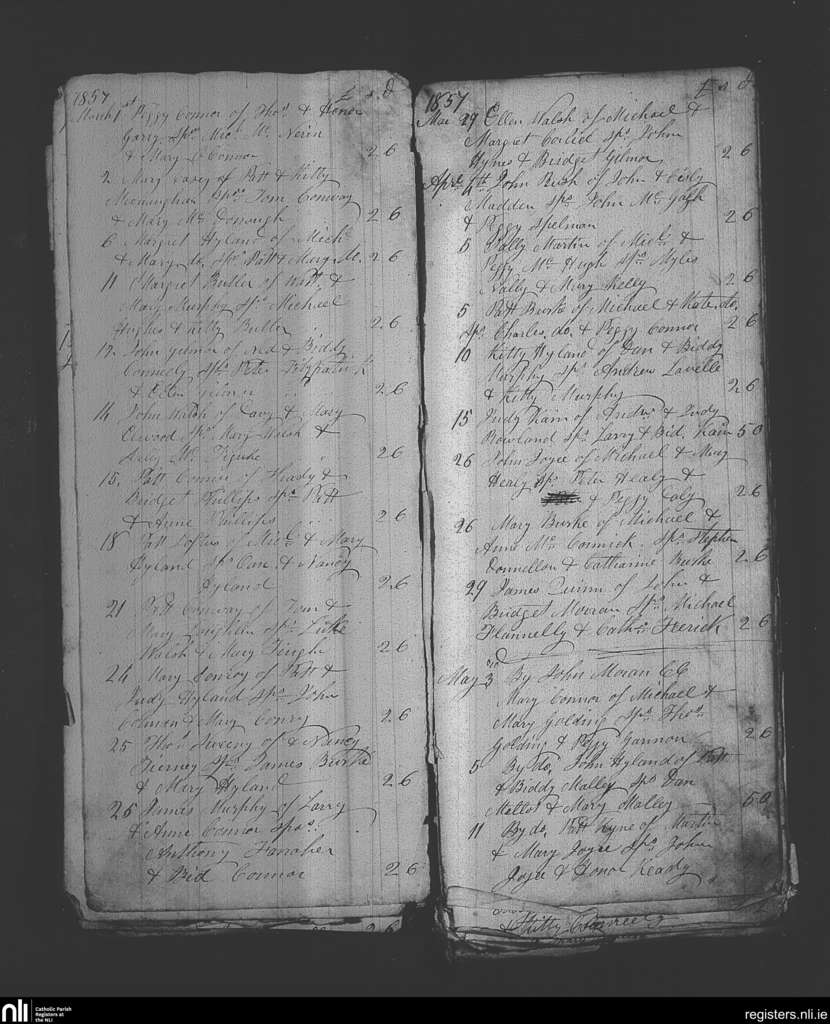 1857 £ s. d
March 1st Peggy Connor of Thos. & Honor
Garry Sps. Mic. W. Nevin
& Mary O Connor 2 6
2 Mary Casey of Patt & Kitty
Monnughan Sps. Tom Conway
& Mary Mc Donough 2 6
6 Margret Hyland of Michl.
& Mary do. Sps. Patt & Mary M. 2 6
11 Margret Butler of Watt. &
Mary Murphy Sps. Michael
Hughes & Kitty Butler 2 6
12. John Gilmor of Ned & Biddy
Connedy Sps. Peter Fitzpatrick
& Ellen Gilmor 2 6
14 John Walsh of Davy & Mary
Elwood Sps. Mary Walsh &
Mc Tighe 2 6
15. Patt Connor of Heady &
Bridget Phillips Sps. Patt
& Anne Phillips 2 6
18 Patt Loftus of Micl. & Mary
Hyland Sps. & Nancy
Hyland 2 6
21 Patt Conway of Tom &
Mary Loughlin Sps. Luke
Walsh & Mary Tinghe 2 6
24 Mary Conroy of Patt &
Judy Hyland Sps. John
& Mary Conry 2 6
25 Thos. Sweeny of & Nancy
Tierney Sps. James Burke
& Mary Hyland 2 6
26 James Murphy of Larry
& Anne Connor Spos.
Anthony Fanaher
& Bid Connor 2 6
1857 £ s. d.
Mar 29 Ellen Walsh of Michael &
Margret Sps. John
Hynes & Bridget Gilmor 2 6
Aprl. 4th John Rush of John & Cicily
Madden Sps. John Mc
& Peggy Spelman 2 6
5 Sally Martin of Micl. &
Peggy Mc Hugh Sps. Myles
Nally & Mary Kelly 2 6
5 Patt Burke of Michael & Kate do.
Sps. Charles do. & Peggy Connor 2 6
10 Kitty Hyland of Dan & Biddy
Murphy Sps. Andrew Lavelle
& Kitty Murphy 2 6
15 Judy Kain of Andw. & Judy
Rowland Sps. Larry & Bid. Kain 5 0
26 John Joyce of Michael & Mary
Healy Sps. Peter Healy &
& Peggy Caly 2 6
26 Mary Burke of Michael &
Anne Mc Cormick Sps. Stephen
Donnellon & Catharine Burke 2 6
29 James Quinn of John &
Bridget Moran Sps. Michael
Flannelly & Cathe. Frerick 2 6
May 3rd By John Moran CC
Mary Connor of Michael &
Mary Golding Sps. Thos.
Golding & Peggy Gannon 2 6
5 By do. John Hyland of Patt
& Biddy Malley Sps. Dan
Mellot & Mary Malley 5 0
11 By do. Patt Kyne of Martin
& Mary Joyce Sps. John
Joyce & Honor Keady
& Kitty
nli
Catholic Parish
Registers at
the NLI
registers.nli.ie